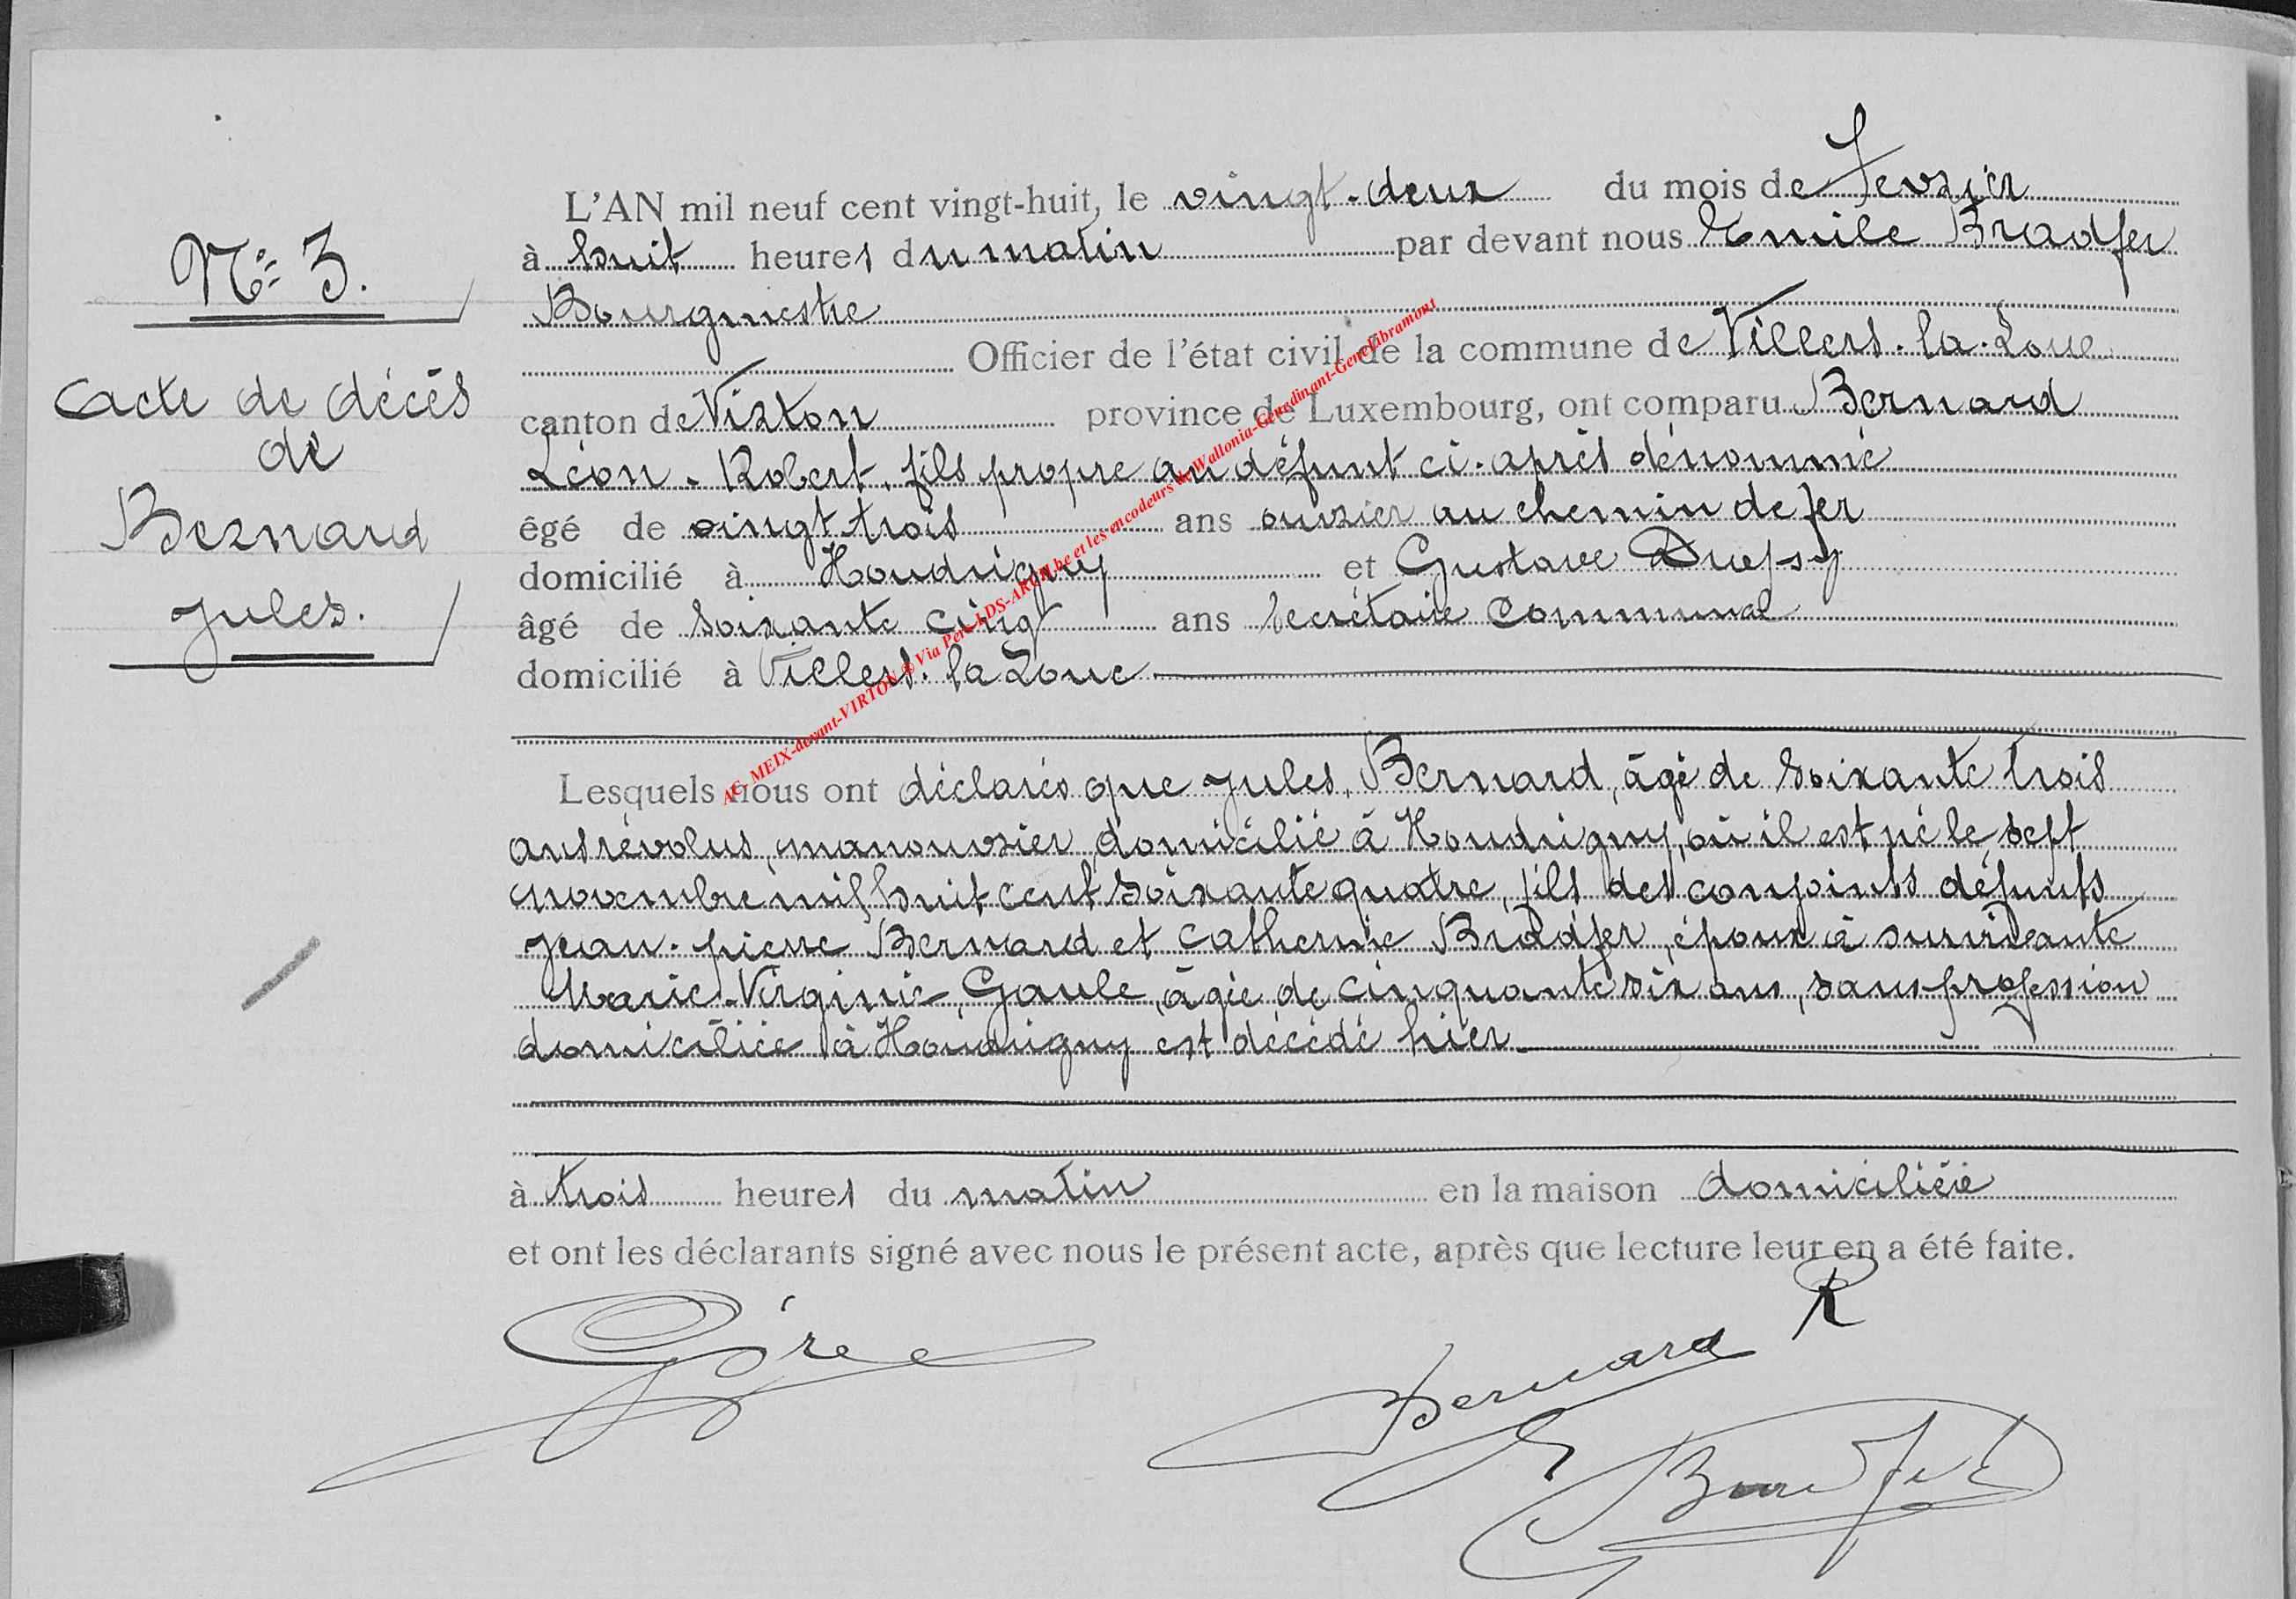 N° 3.
Acte de décès
de
Bernard
Jules.
L'AN mil neuf cent vingt-huit, le vingt-deux du mois de Fevrier
à huit heures du matin par devant nous Emile Bradfer
Bourgmestre
Officier de l'état civil de la commune de Villers-la-Loue
canton de Virton province de Luxembourg, ont comparu Bernard
Léon-Robert, fils propre au défunt ci-après dénommé
êgé de vingt-trois ans ouvrier au chemin de fer
domicilié à Houdrigny et Gustave
âgé de soixante cinq ans secrétaire communal
domicilié à Villers-la-Loue
Lesquels nous ont déclarés que Jules Bernard, âgé de soixante trois
ans révolus, manouvrier, domicilié à Houdrigny, où il est né le sept
novembre mil huit cent soixante quatre, fils des conjoints défunts
Jean-pierre Bernard et Catherine Bradfer, époux à survivante
Marie-Virginie Gaule, âgée de cinquante six ans, sans profession
domiciliée à Houdrigny est décédé hier
à trois heures du matin en la maison domiciliére
et ont les déclarants signé avec nous le présent acte, après que lecture leur en a été faite.
Bernard R
E Bradfer
AC- MEIX-devant-VIRTON © Via Pere-LDS-ARCH.be et les encodeurs de Wallonia-Genedinant-GeneLibramont